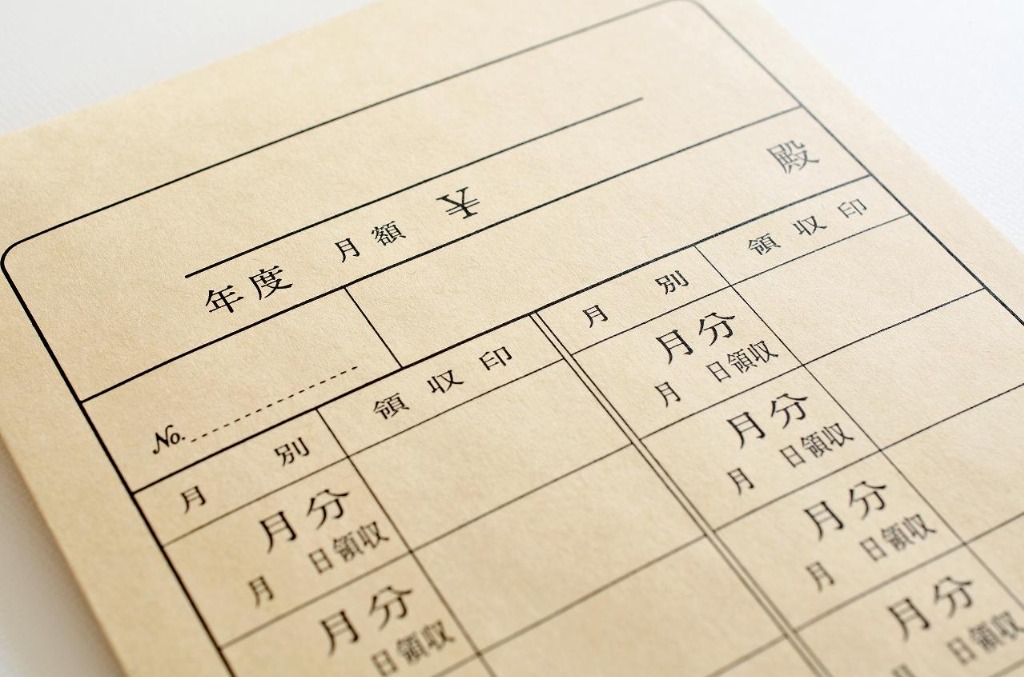 年度 月額 ¥
殿
No.
月別 領収印
月分
月 日領収
月分
日領収
月別 領収印
月分
月 日領収
月分
月 日領収
月分
月 日領収
月分
月 日領収